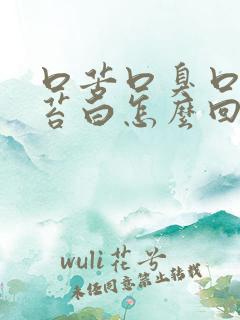 口苦口臭口
苔白怎麼回
wuli花兮
未经同意禁止转载